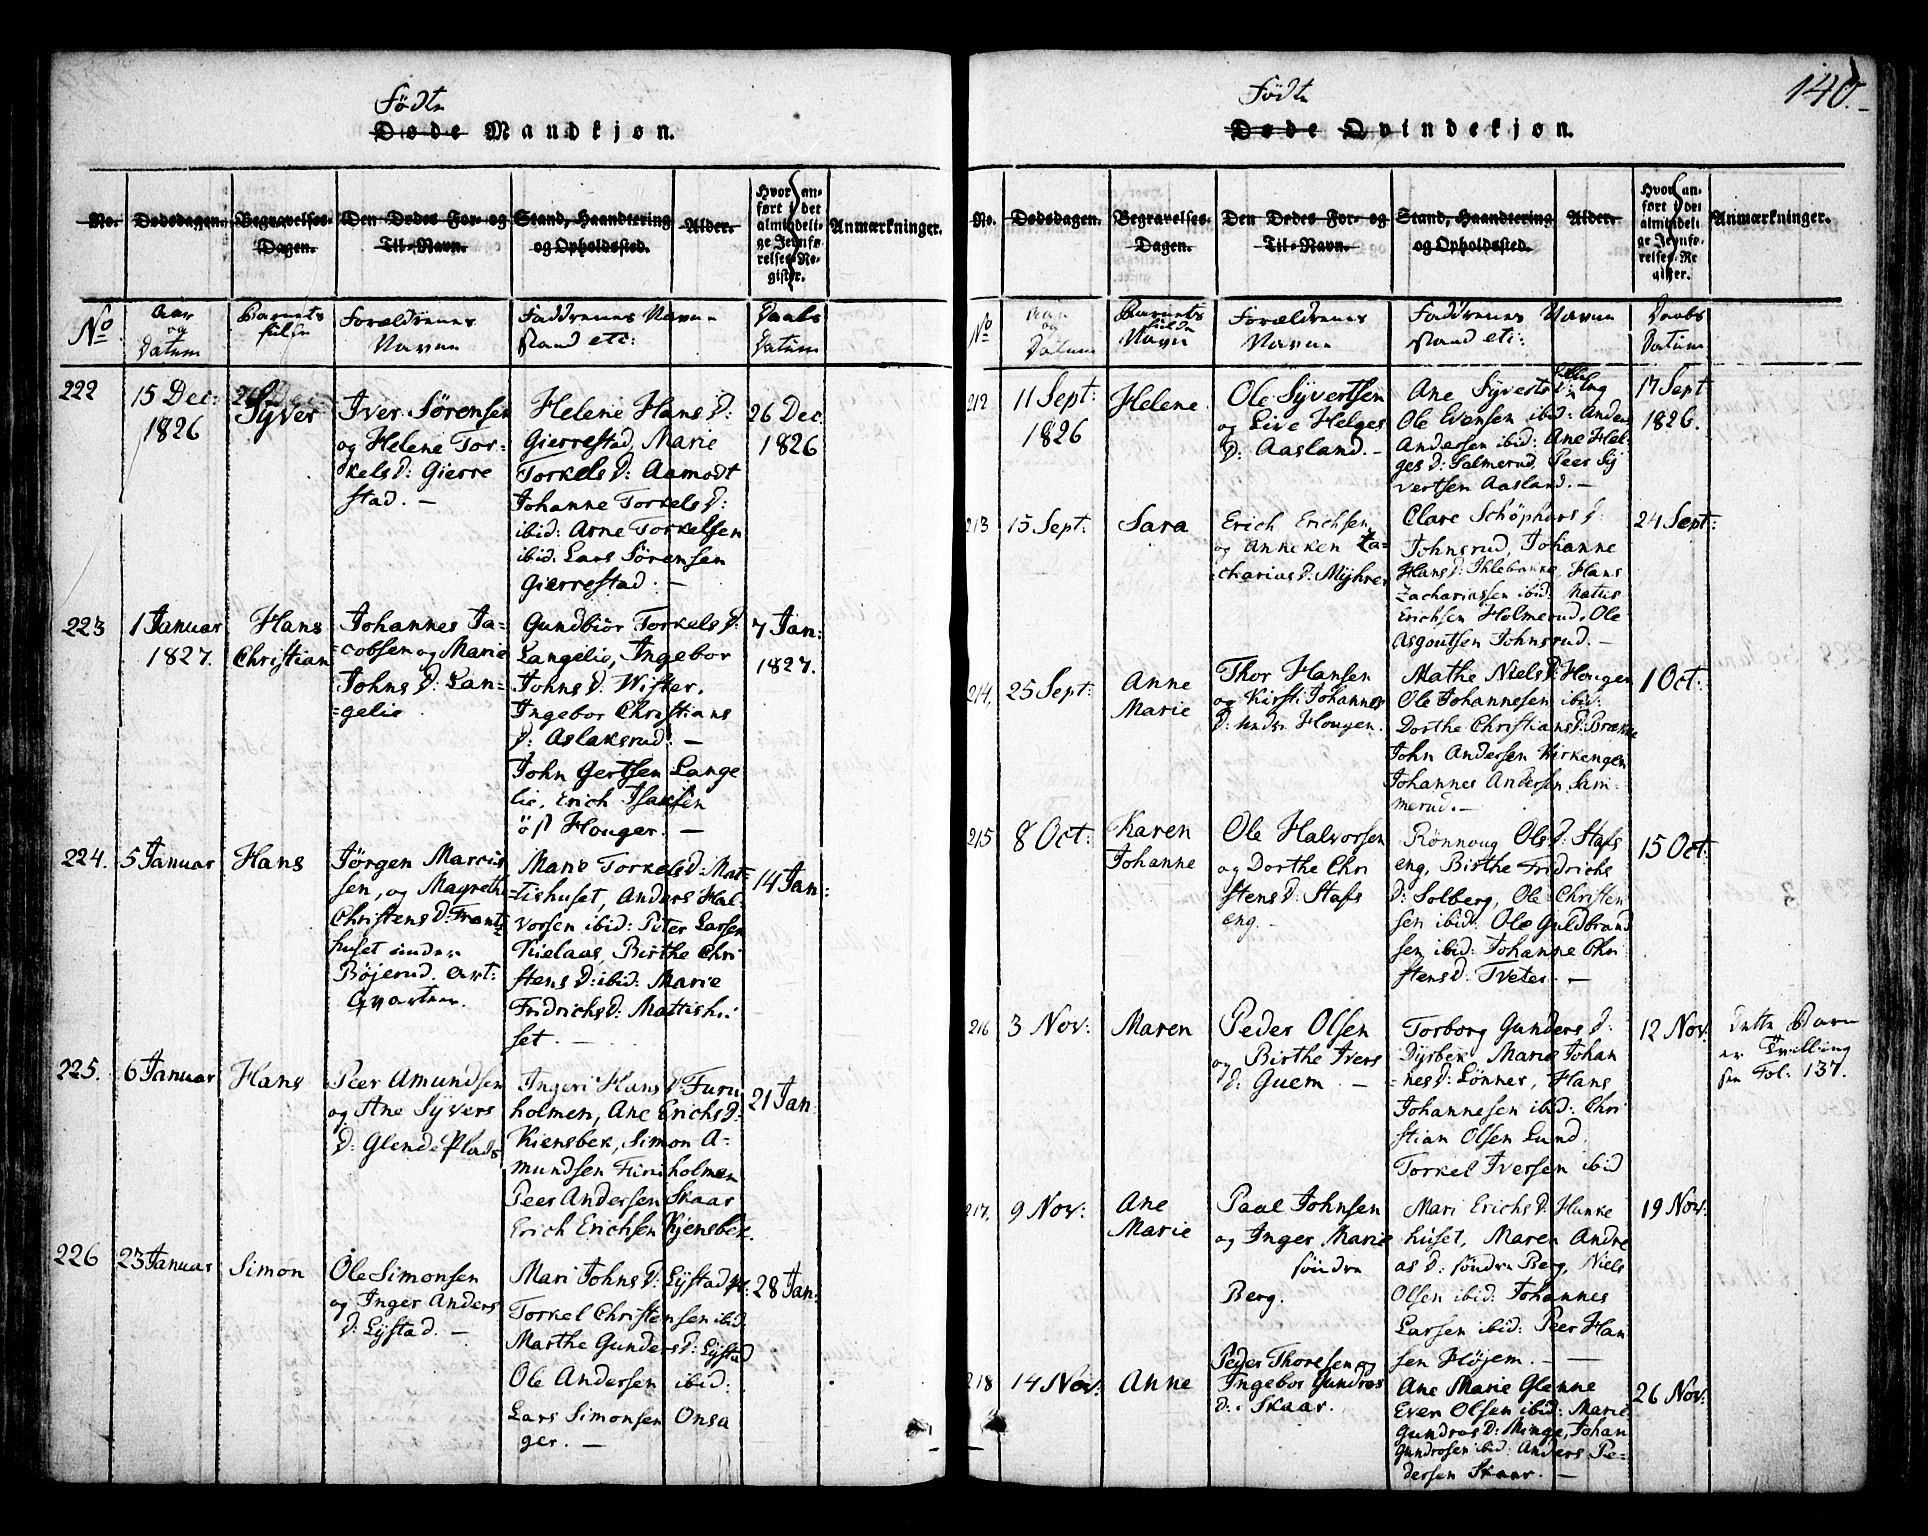 140.
Födte
Døde Mandkjøn.
No.
Dødsdagen.
Begravelses-
Dagen.
Den Dødes For- og
Til-Navn.
Stand, Haandtering
og Opholdssted.
Alder.
Hvor an-
ført i det
almindeli-
ge Jevnfø-
relses-Re-
gister.
Anmærkninger.
No
Aar
og
Datum
Barnets
fulde
Forældrenes
Navne
Faddrenes Navne
Stand etc:
Daabs
Datum
222
15 Dec:
1826
Syver
Iver Sörensen
og Helene Tor-
kels D: Gierre
stad. -
Helene Hans D:
Gierrestad, Marie
Torkels D: Aamodt
Johanne Torkels D:
ibid: Arne Torkelsen
ibid: Lars Sörensen
Gierrestad. -
26 Dec
1826
223
1 Januar
1827.
Hans
Christian
Johannes Ja-
=cobsen og Marie
Johns D: Lan=
=gelie
Gundbiör Torkels D:
Langelie, Ingebor
Johns D: Wister.
Ingebor Christians
D: Aslaksrud. -
John Gertsen Lange
lie, Erich Isaksen
öst Houger. -
7 Jan:
1827.
224.
5 Januar
Hans
Jörgen Marcus
sen, og Magrethe
Christens D: Frants
huset under
Böjerud. Art:
Qvarteer.
Marie Torkels D: Mat-
=tishuset, Anders Hal-
vorsen ibid: Peter Larsen
Kielaas, Birthe Chri
stens D: ibid: Marie
Fridrichs D: Mattishu
set. -
14 Jan:
225.
6 Januar
Hans
Peer Amundsen
og Ane Syvers
D: Glende Plads
Ingeri Hans D: Furu
holmen, Ane Erichs D:
Kiensbek, Simon A-
mundsen Furuholmen
Peer Andersen Skaar
Erich Erichsen Kjensbek.
21 Jan
226
23 Januar
Simon
Ole Simonsen
og Inger Anders
D: Lystad. -
Mari Johns D: Lystad
Torkel Christensen ibid.
Marthe Gunders D: Lystad
Ole Andersen ibid:
Lars Simonsen Onsa
ger. -
28 Jan:
Födte
Døde Qvindekjøn.
No.
Dødsdagen.
Begravelses-
Dagen.
Den Dødes For- og
Til-Navn.
Stand, Haandtering
og Opholdssted.
Alder.
Hvor an-
ført i det
almindeli
ge Jevnfø-
relses-Re
gister.
Anmærkninger.
No
Aar
og
Datum
Barnets
fulde
Navn
Forældrenes
Navne
Faddrenes Navne
Stand etc:
Daabs
Datum
212
11 Sept:
1826
Helene
Ole Syvertsen
og Live Helges
D: Aasland. -
Ane Syverts D:
Ole Evensen ibid: Anders
Andersen ibid: Ane Hel-
ges D: Salmerud, Peer Sy
vertsen Aasland. -
17 Sept
1826.
213
15 Sept:
Sara
Erich Erichsen
og Anneken Za=
=charias D: Myhrer
Clare Schöphars D:
Johnsrud, Johanne
Hans D: Iklebanne, Hans
Zachariassen ibid: Mattis
Erichsen Holmerud, Ole
Asgoutsen Johnsrud. -
24 Sept:
214.
25 Sept:
Anne
Marie
Thor Hansen
og Kirsti Johannes
D: under Hougen.
Mathe Niels D: Hougen
Ole Johannesen ibid:
Dorthe Christians D: Brække
John Andersen Kirkengen
Johannes Andersen Sam-
merud. -
1 Oct:
215
8 Oct:
Karen
Johanne
Ole Halvorsen
og Dorthe Chri
stens D: Stafs
eng. -
Rönnoug Ols D: Stafs
eng, Birthe Fridrichs
D: Solberg, Ole Christen
sen ibid: Ole Guldbrand
sen ibid: Johanne Chri
stens D: Tveter. -
15 Oct:
216
3 Nov:
Maren
Peder Olsen
og Birthe Ivers
D: Guem. -
Torborg Gunders D:
Dysbek, Marie Johan
=nes D: Lönner, Hans
Johannesen ibid: Chri
stian Olsen Lund.
Torkel Iversen ibid
12 Nov:
Dette Barn
er Tvilling
see Fol: 137.
217.
9 Nov:
Ane
Marie
Paul Johnsen
og Inger Marie
söndre
Berg.
Mari Erichs D: Hunke
huset, Maren Andre
as D: söndre Berg, Niels
Olsen ibid: Johannes
Larsen ibid: Peer Han
sen Höjem. -
19 Nov:
218
14 Nov:
Anne
Peder Thoresen og
Ingebor Gundros
D: Skaar.
Ane Marie Glenne
Even Olsen ibid: Marie
Gundros D: Minge, Johan
Gundrosen ibid: Anders Pe-
dersen Skaar. -
26 Nov: